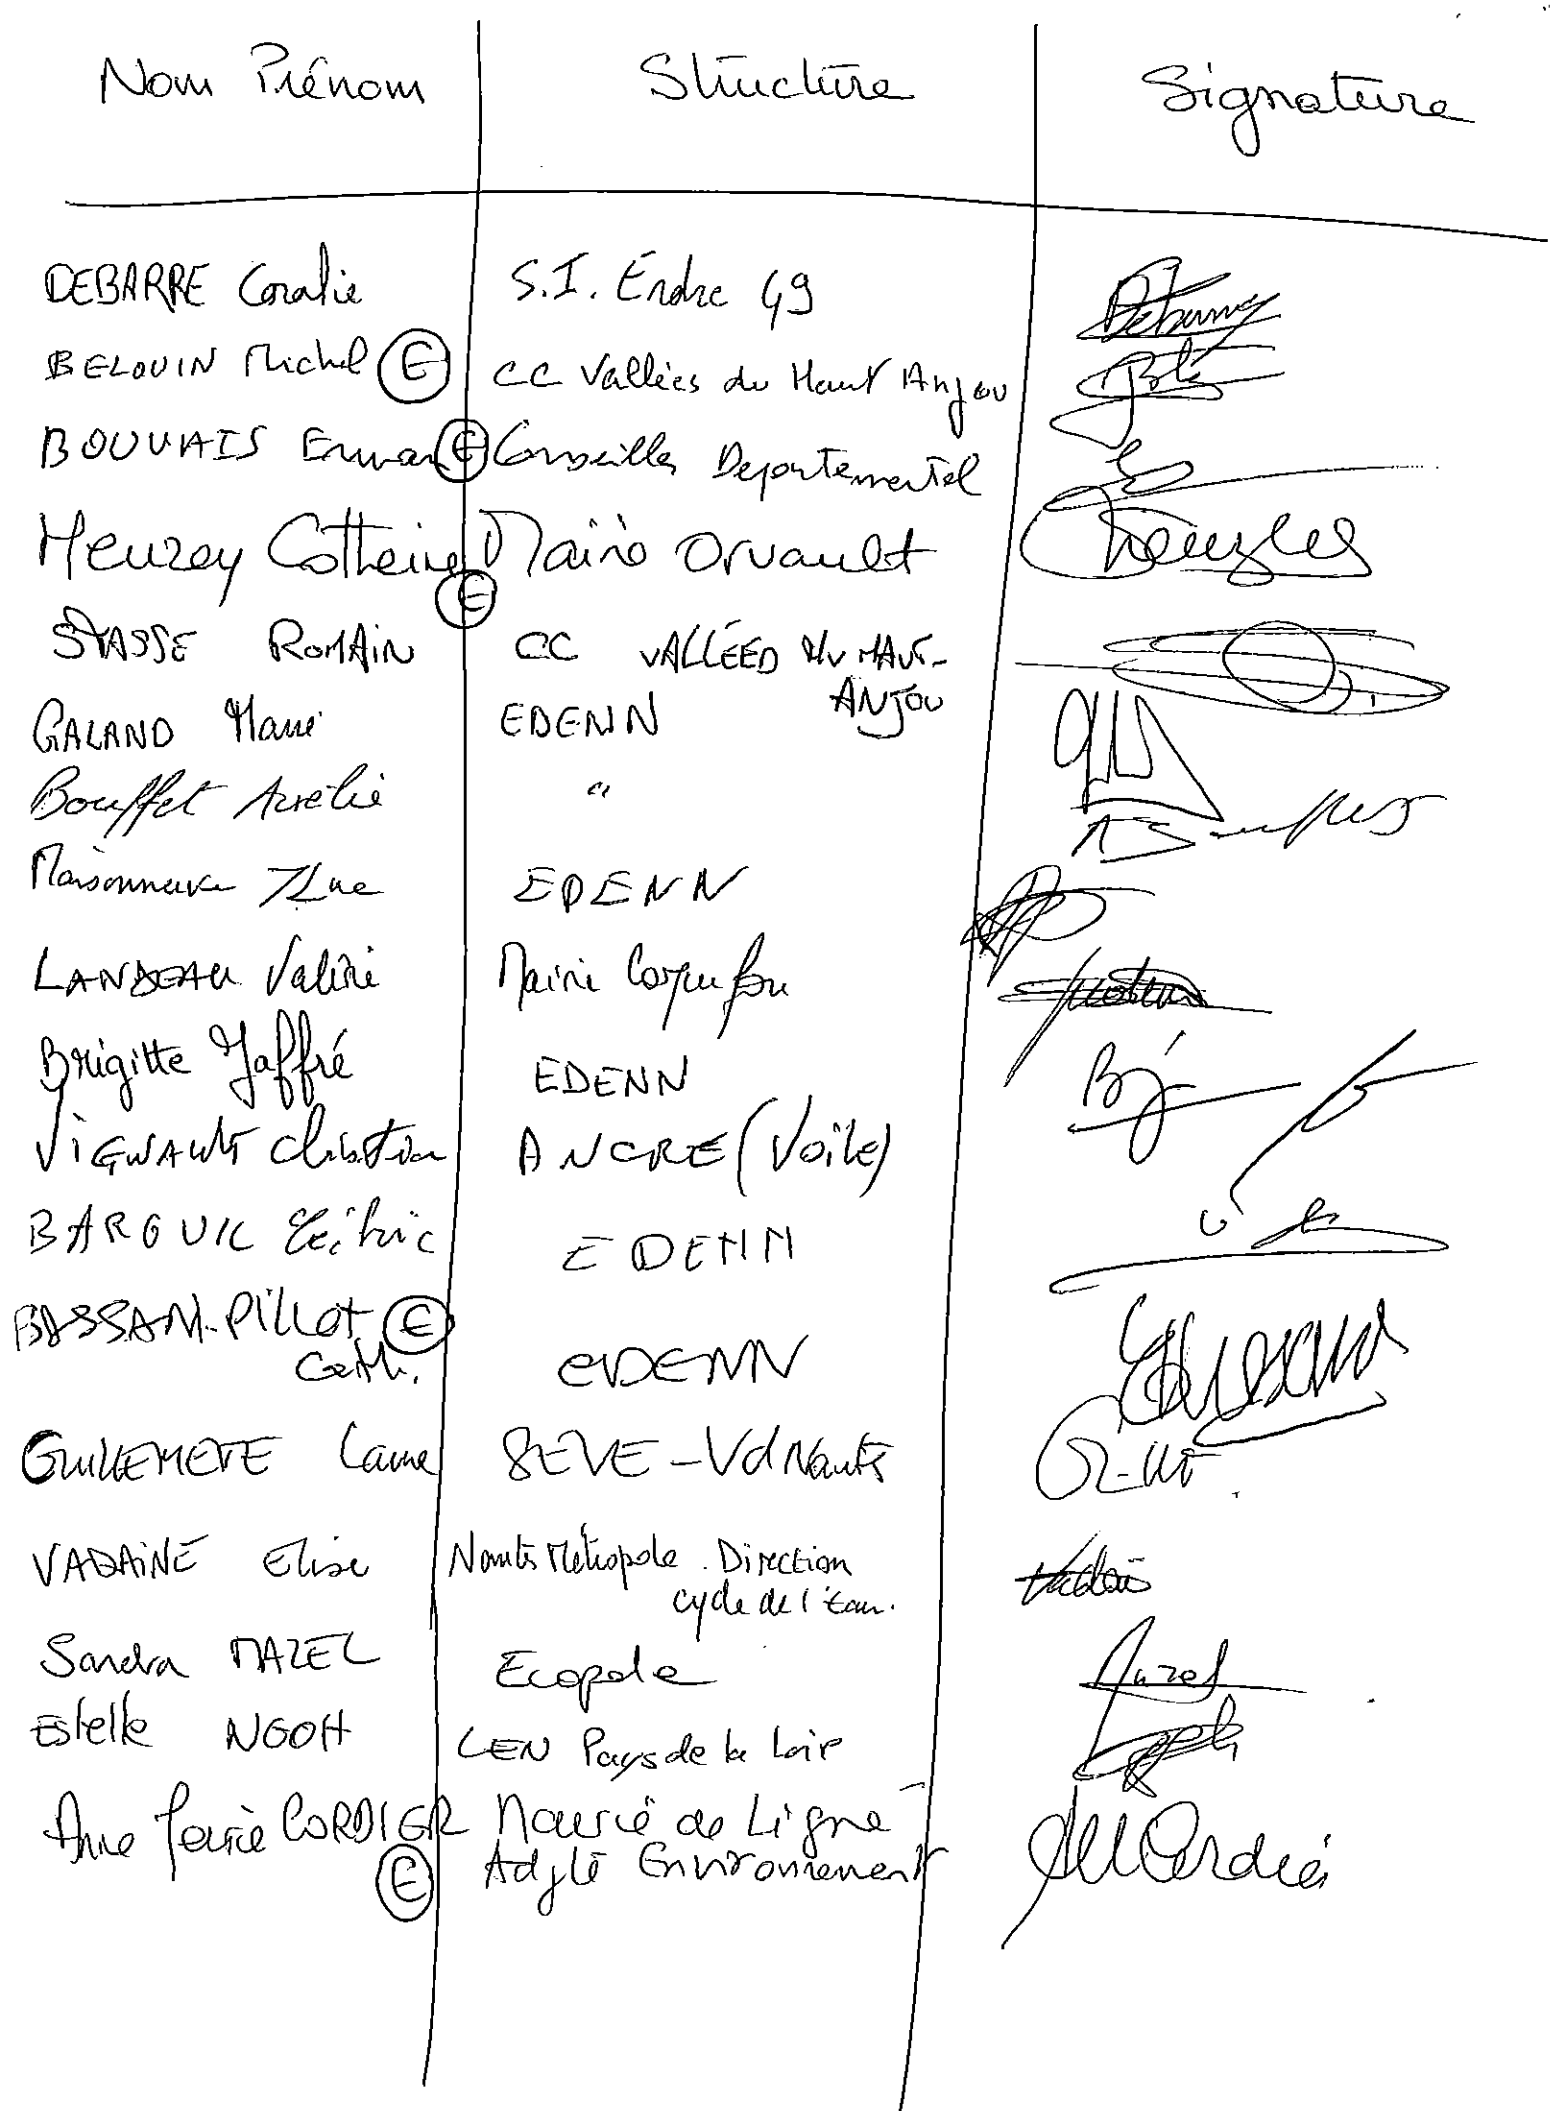 Nom Prénom Structure Signature
DEBARRE Coralie S.I. Erdre 49
BELOUIN Michel E CC Vallées du Haut Anjou
BOUVAIS Erwan E Conseiller Departemental
Heuzey Catherine E Mairie Orvault
STASSE ROMAIN CC VALLÉES DU HAUT-
ANJOU
GALAND Marie EDENN
Bouffet Aurélie "
Maisonneuve JLuc EDENN
LANDEAU Valérie Mairie Carquefou
Brigitte Jaffré EDENN
VIGNAULT Christian ANCRE (Voile)
BARGUIL EDENN
BASSANI-PILLOT E
Cath. EDENN
GUILLEMETE SEVE - Vd Nantes
VADAINE Elise Nantes Métropole. Direction
cycle de l'Eau.
Sandra MAZEL Ecopole
Estelle NGOH CEN Pays de la Loire
Anne Marie CORDIER E Mairie de Ligné
Adjte Environnement